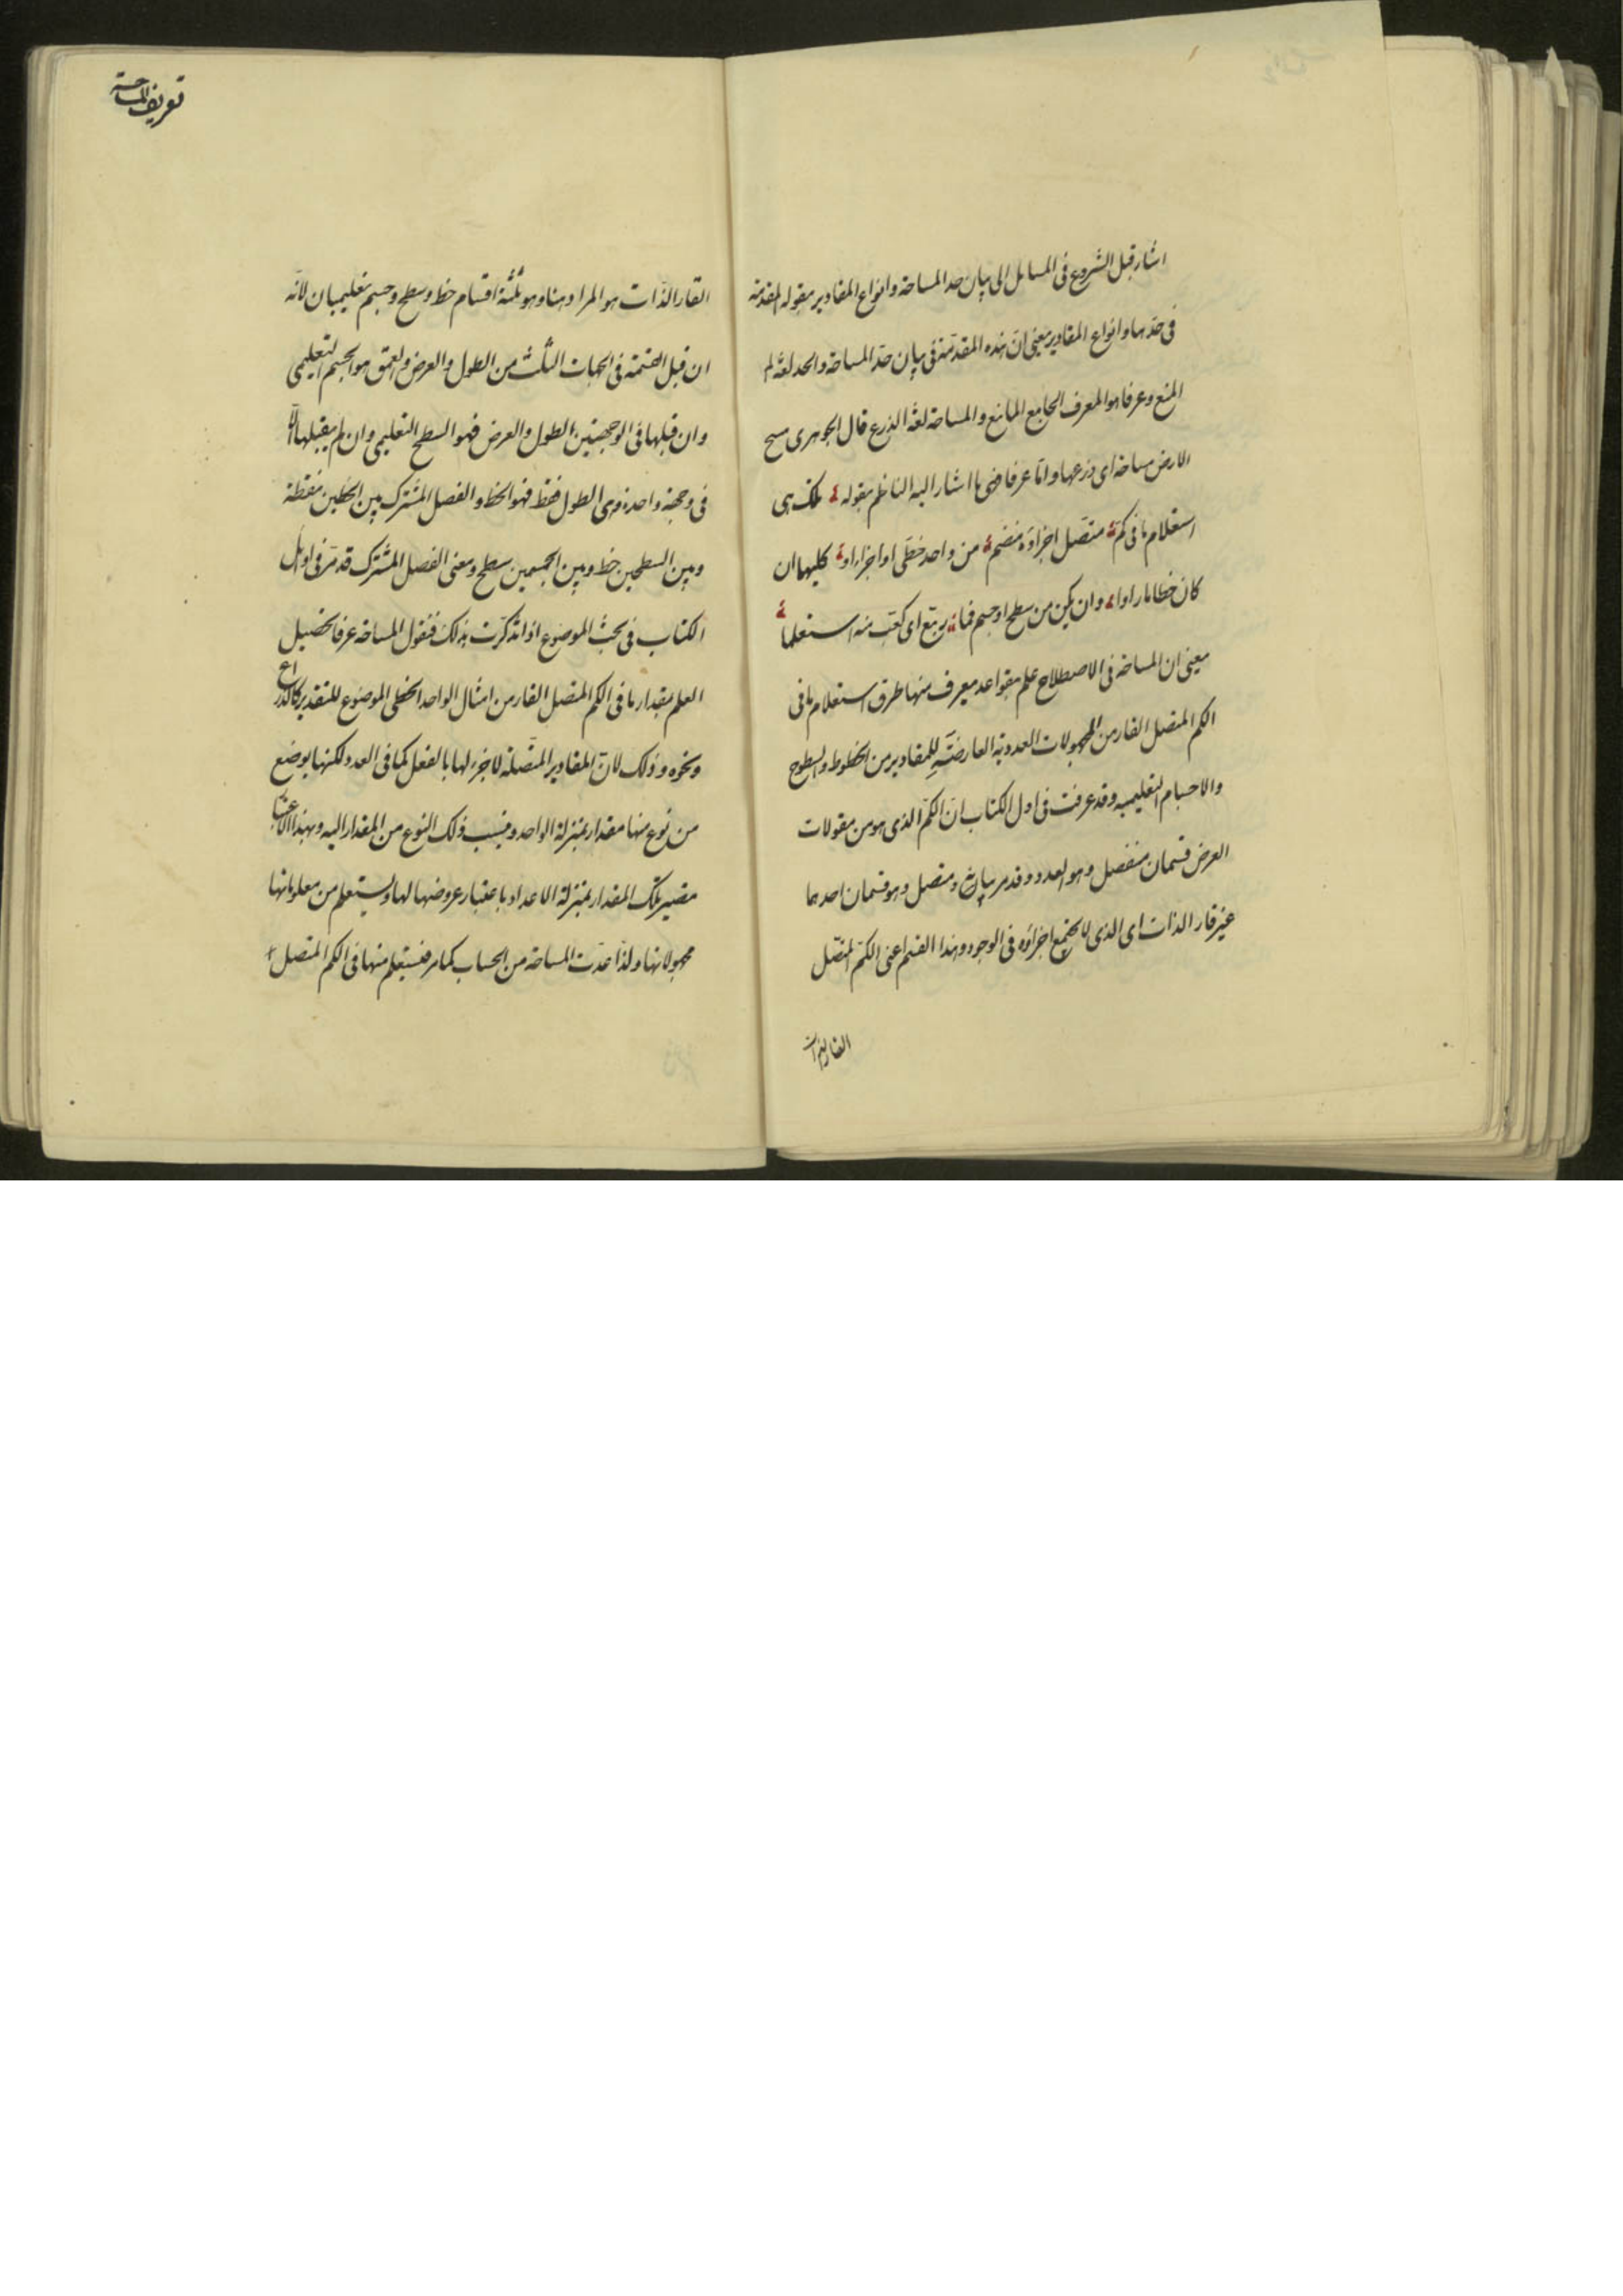 اشار قبل الشروع فى المسائل الى بيان حد المساحة وانواع المقادير بقوله المقدمة
فى حدها وانواع المقادير يعنى ان هذه المقدمة فى بيان حد المساحة والحد لغة
المنع وعرفا هو المعرف الجامع المانع والمساحة لغة الذرع قال الجوهرى مسح
الارض مساحة اى ذرعها واما عرفا فهى ما اشار اليه الناظم بقوله تلك هى
استعلام ما فى كم متصل اجزاؤه تنضم من واحد خطى او اجزاء او كليهما ان
كان خطا ما راوا وان يكن من سطح او جسم فما ربع اى كعب منه استعلما
يعنى ان المساحة فى الاصطلاح علم بقواعد يعرف منها طرق استعلام ما فى
الكم المتصل القار من المجهولات العددية العارضة للمقادير من الخطوط والسطوح
والاجسام التعليمية وقد عرفت فى اول الكتاب ان الكم الذى هو من مقولات
العرض قسمان منفصل وهو العدد وقد مر بيانه ومتصل وهو قسمان احدهما
غير قار الذات اى الذى لا يجتمع اجزاؤه فى الوجود وهذا القسم اعنى الكم المتصل
القار الذات
تعريف المساحة
القار الذات هو المراد هنا وهو ثلثة اقسام خط وسطح وجسم تعليميان لانه
ان قبل القسمة فى الجهات الثلث من الطول والعرض والعمق هو الجسم التعليمى
وان قبلها فى الوجهتين الطول والعرض فهو السطح التعليمى وان لم يقبلها الا
فى وجهة واحدة وهى الطول فقط فهو الخط والفصل المشترك بين الخطين نقطة
وبين السطحين خط وبين الجسمين سطح ومعنى الفصل المشترك قد مر فى اوائل
الكتاب فى بحث الموضوع اذا تذكرت ذلك فنقول المساحة عرفا تحصيل
العلم بمقدار ما فى الكم المتصل القار من امثال الواحد الخطى الموضوع للتقدير كالذراع
ونحوه وذلك لان المقادير المتصلة لا جزء لها بالفعل كما فى العدد لكنها يوضع
من نوع منها مقدار بمنزلة الواحد وينسب ذلك النوع من المقدار اليه وبهذا الاعتبار
تصير تلك المقدار بمنزلة الاعداد باعتبار عروضها لها ويستعلم من معلوماتها
مجهولاتها ولذا عدت المساحة من الحساب كما مر فنستعلم منها فى الكم المتصل